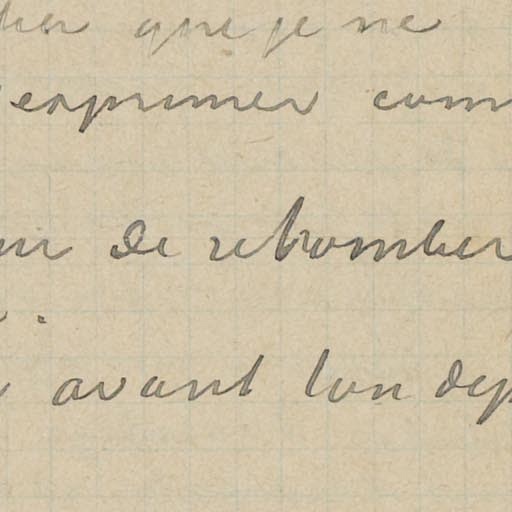 que je ne
exprimer com
de retromber
avant ton dep